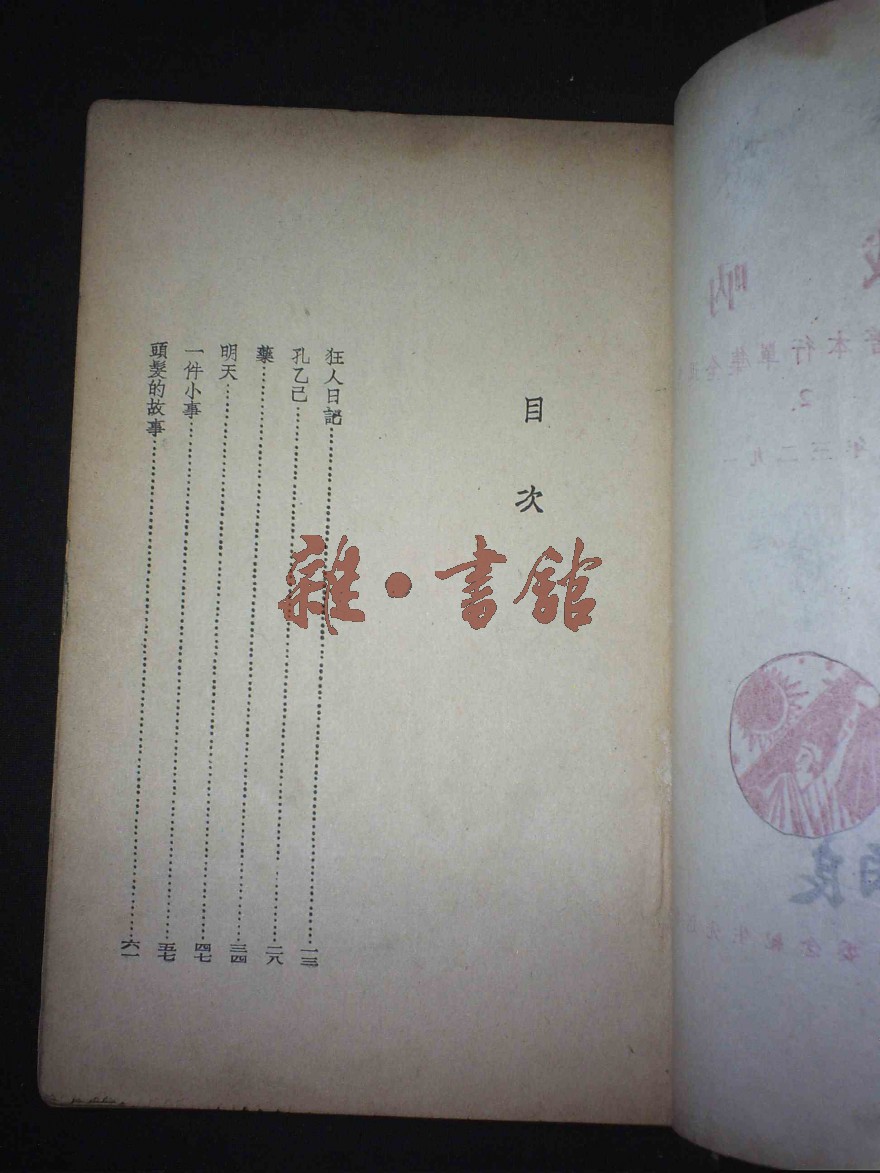 目次
狂人日記……一三
孔乙己……二八
藥……三四
明天……四七
一件小事……五七
頭髮的故事……六一
雜•書館
吶
行本
2.
一九二三年
良